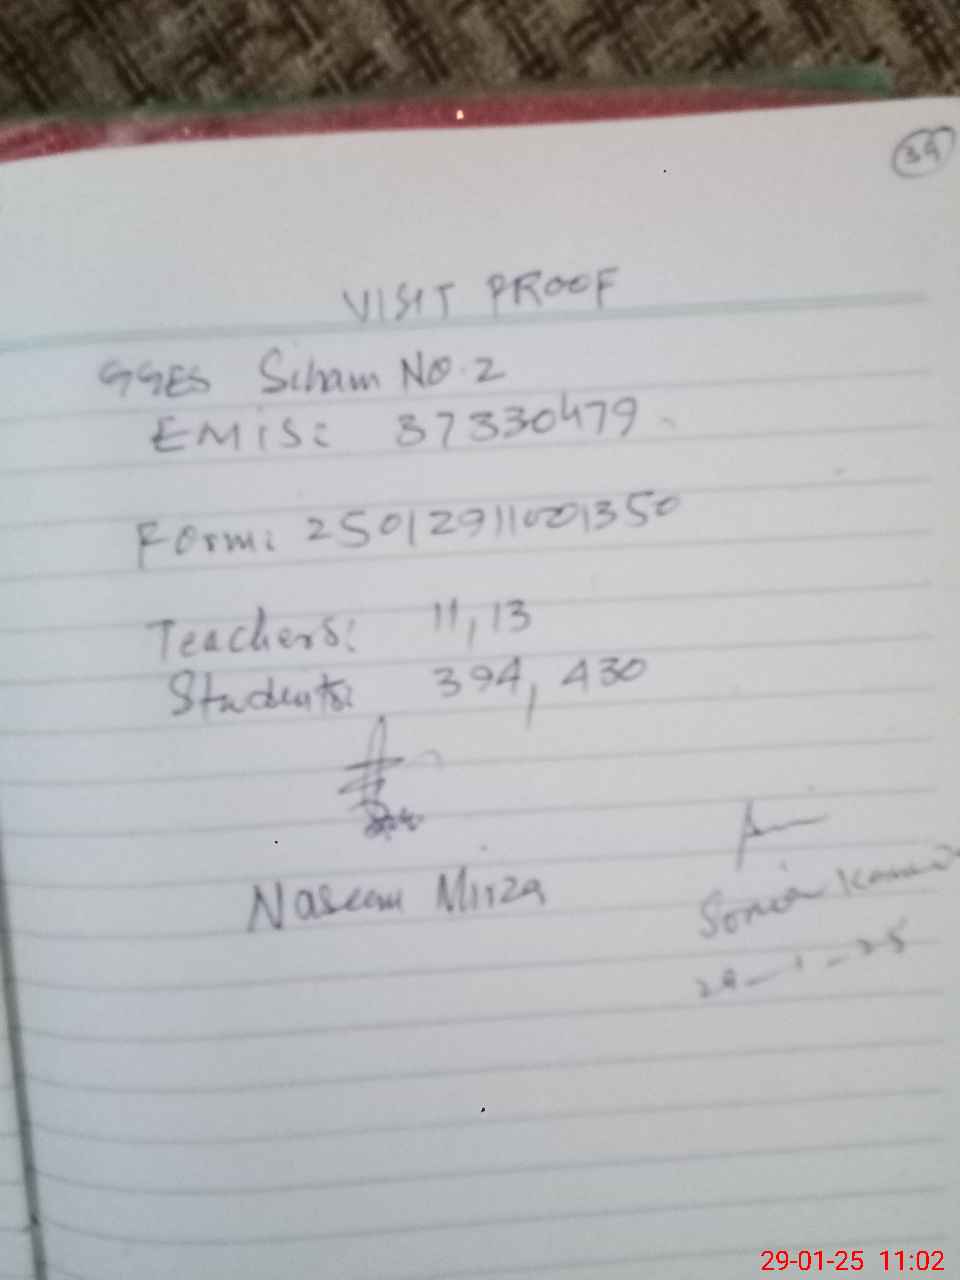 39
VISIT PROOF
GGES Siham No.2
EMIS: 37330479
Form: 250129110201350
Teachers: 11, 13
Students: 394, 430
Naseem Mirza
Sonia
29-1-25
29-01-25 11:02